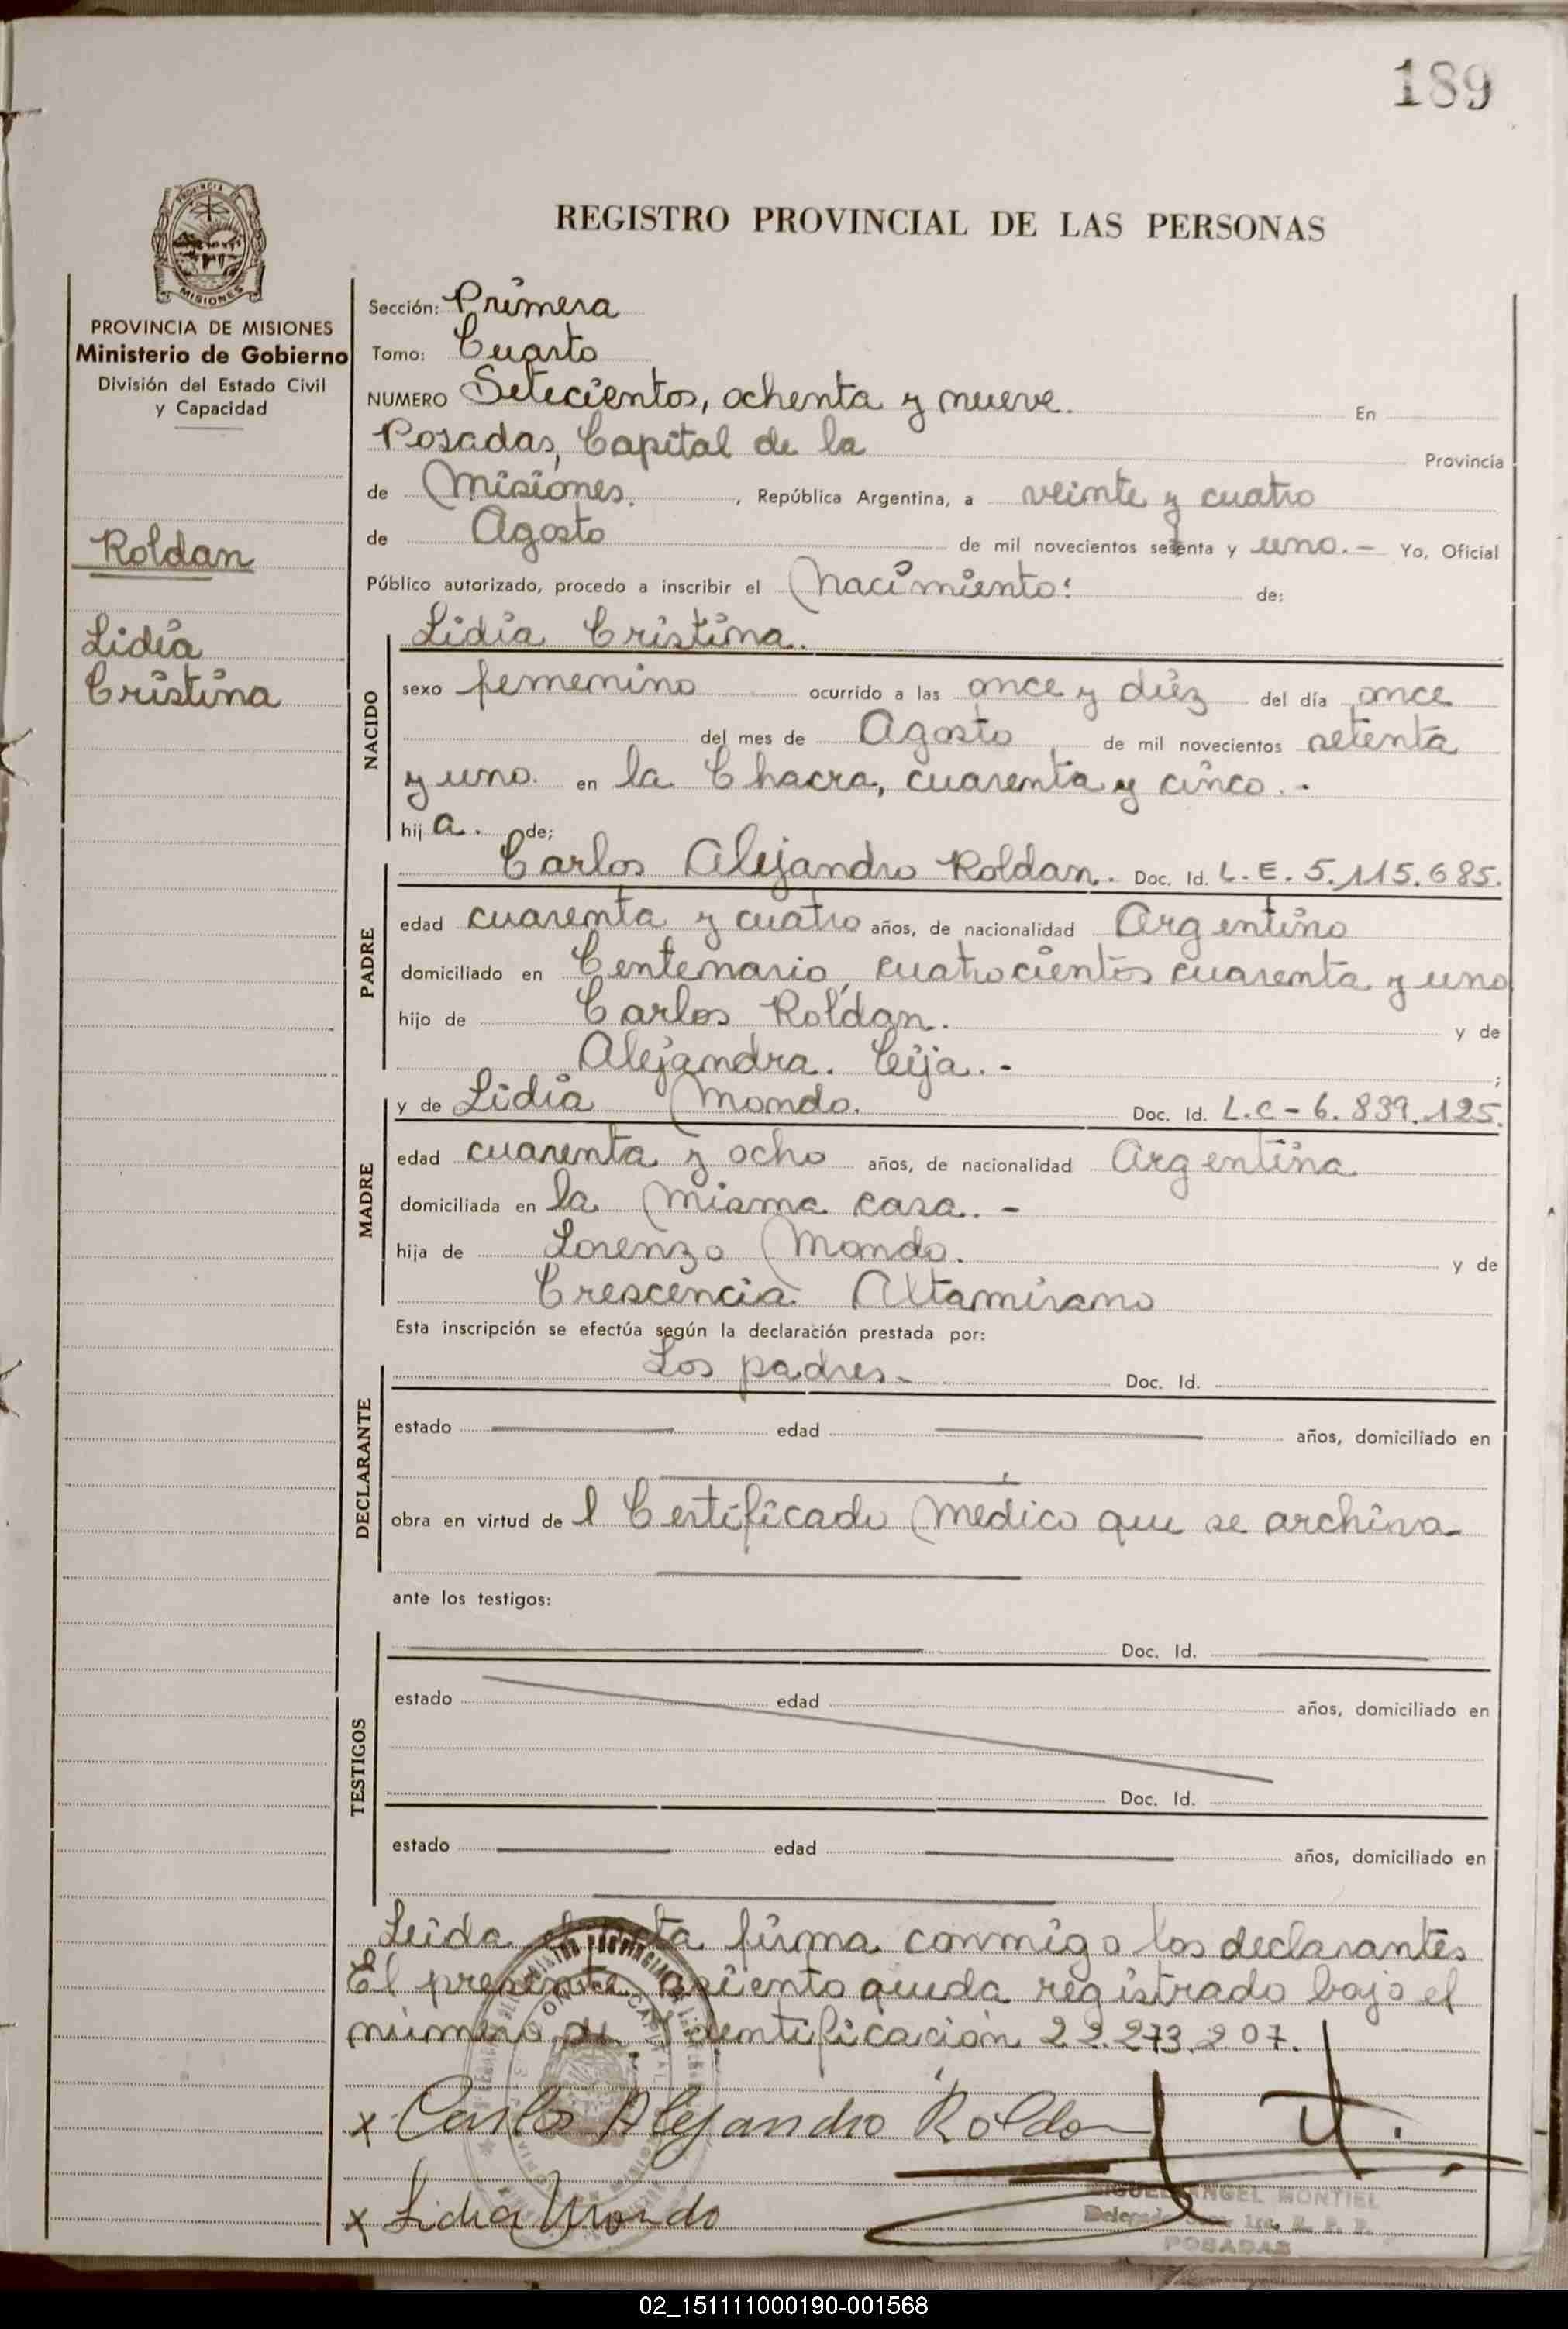 189
PROVINCIA DE
MISIONES
REGISTRO PROVINCIAL DE LAS PERSONAS
PROVINCIA DE MISIONES
Ministerio de Gobierno
División del Estado Civil
y Capacidad
Roldan
Lidia
Cristina
Sección: Primera
Tomo: Cuarto
NUMERO Setecientos, ochenta y nueve. En
Posadas, Capital de la Provincia
de Misiones. , República Argentina, a veinte y cuatro
de Agosto de mil novecientos setenta y uno.- Yo, Oficial
Público autorizado, procedo a inscribir el Nacimiento: de:
Lidia Cristina.
NACIDO
sexo femenino ocurrido a las once y diez del día once
del mes de Agosto de mil novecientos setenta
y uno. en la Chacra, cuarenta y cinco.-
hij a. de;
PADRE
Carlos Alejandro Roldan. Doc. Id. L.E. 5.115.685.
edad cuarenta y cuatro años, de nacionalidad Argentino
domiciliado en Centenario, cuatrocientos cuarenta y uno
hijo de Carlos Roldan. y de
Alejandra. Ceija.- ;
MADRE
y de Lidia Mondo. Doc. Id. L.C-6.839.125.
edad cuarenta y ocho años, de nacionalidad Argentina
domiciliada en la misma casa.-
hija de Lorenzo Mondo. y de
Crescencia Altamirano
Esta inscripción se efectúa según la declaración prestada por:
DECLARANTE
Los padres- Doc. Id.
estado edad años, domiciliado en
obra en virtud de l Certificado Medico que se archiva
ante los testigos:
TESTIGOS
Doc. Id.
estado edad años, domiciliado en
Doc. Id.
estado edad años, domiciliado en
Leida firma conmigo los declarantes
El presente asiento queda registrado bajo el
número de Identificación 22.273.207.
x Carlos Alejandro Roldan
x Lidia Mondo
MIGUEL ANGEL MONTIEL
POSADAS
02_151111000190-001568